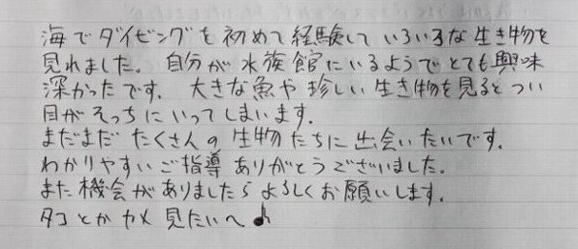 海でダイビングを初めて経験していろいろな生き物を
見れました。自分が水族館にいるようでとても興味
深かったです。大きな魚や珍しい生き物を見るとつい
目がそっちにいってしまいます。
まだまだたくさんの生物たちに出会いたいです。
わかりやすいご指導ありがとうございました。
また機会がありましたらよろしくお願いします。
タコとかカメ見たいへ♪